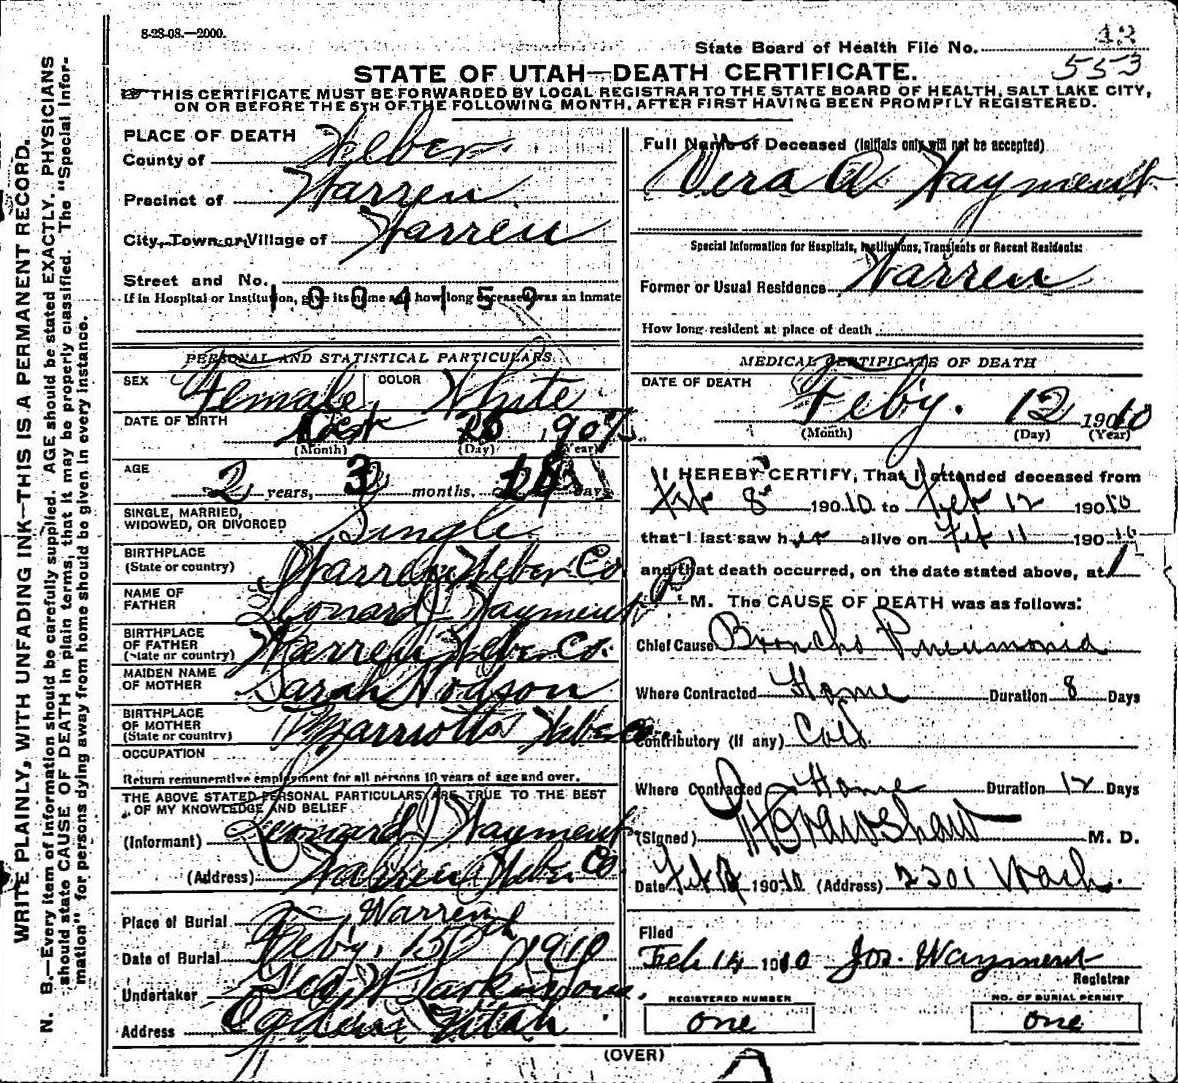 8-28-08.—2000.
State Board of Health File No. 42
553
STATE OF UTAH—DEATH CERTIFICATE.
THIS CERTIFICATE MUST BE FORWARDED BY LOCAL REGISTRAR TO THE STATE BOARD OF HEALTH, SALT LAKE CITY,
ON OR BEFORE THE 5TH OF THE FOLLOWING MONTH, AFTER FIRST HAVING BEEN PROMPTLY REGISTERED.
WRITE PLAINLY, WITH UNFADING INK—THIS IS A PERMANENT RECORD.
N. B.—Every item of information should be carefully supplied. AGE should be stated EXACTLY. PHYSICIANS
should state CAUSE OF DEATH in plain terms, that it may be properly classified. The "Special Infor-
mation" for persons dying away from home should be given in every instance.
PLACE OF DEATH
County of Weber.
Precinct of Warren
City, Town or Village of Warren
Street and No.
If in Hospital or Institution, give its name and how long deceased was an inmate
PERSONAL AND STATISTICAL PARTICULARS
SEX Female COLOR White
DATE OF BIRTH Oct 1907
(Month) (Day) (Year)
AGE
2 years, 3 months, days
SINGLE, MARRIED,
WIDOWED, OR DIVORCED Single
BIRTHPLACE
(State or country) Warren Weber Co
NAME OF
FATHER Leonard J Wayment
BIRTHPLACE
OF FATHER
(State or country) Warren Weber Co.
MAIDEN NAME
OF MOTHER Sarah Hodson
BIRTHPLACE
OF MOTHER
(State or country) Marriotts Weber Co
OCCUPATION
Return remunerative employment for all persons 10 years of age and over.
THE ABOVE STATED PERSONAL PARTICULARS ARE TRUE TO THE BEST
OF MY KNOWLEDGE AND BELIEF
(Informant) Leonard J Wayment
(Address) Warren Weber Co
Place of Burial Warren
Date of Burial Feby. 15 1910
Undertaker Larkin & Sons.
Address Ogden Utah
Full Name of Deceased (Initials only will not be accepted)
Vera A. Wayment
Special Information for Hospitals, Institutions, Transients or Recent Residents:
Former or Usual Residence Warren
How long resident at place of death
MEDICAL CERTIFICATE OF DEATH
DATE OF DEATH
Feby. 12 1910
(Month) (Day) (Year)
I HEREBY CERTIFY, That I attended deceased from
Feb 8 190 10 to Feb 12 190 10
that I last saw her alive on Feb 11 190 10
and that death occurred, on the date stated above, at 1
P M. The CAUSE OF DEATH was as follows:
Chief Cause Broncho Pneumonia
Where Contracted Home Duration 8 Days
Contributory (if any) Cold
Where Contracted Home Duration 12 Days
(Signed) Crawshaw M. D.
Date Feb 190 10 (Address) 2301 Wash.
Filed
Feb 14 1910 Jos. Wayment
Registrar
REGISTERED NUMBER
one
NO. OF BURIAL PERMIT
one
(OVER)